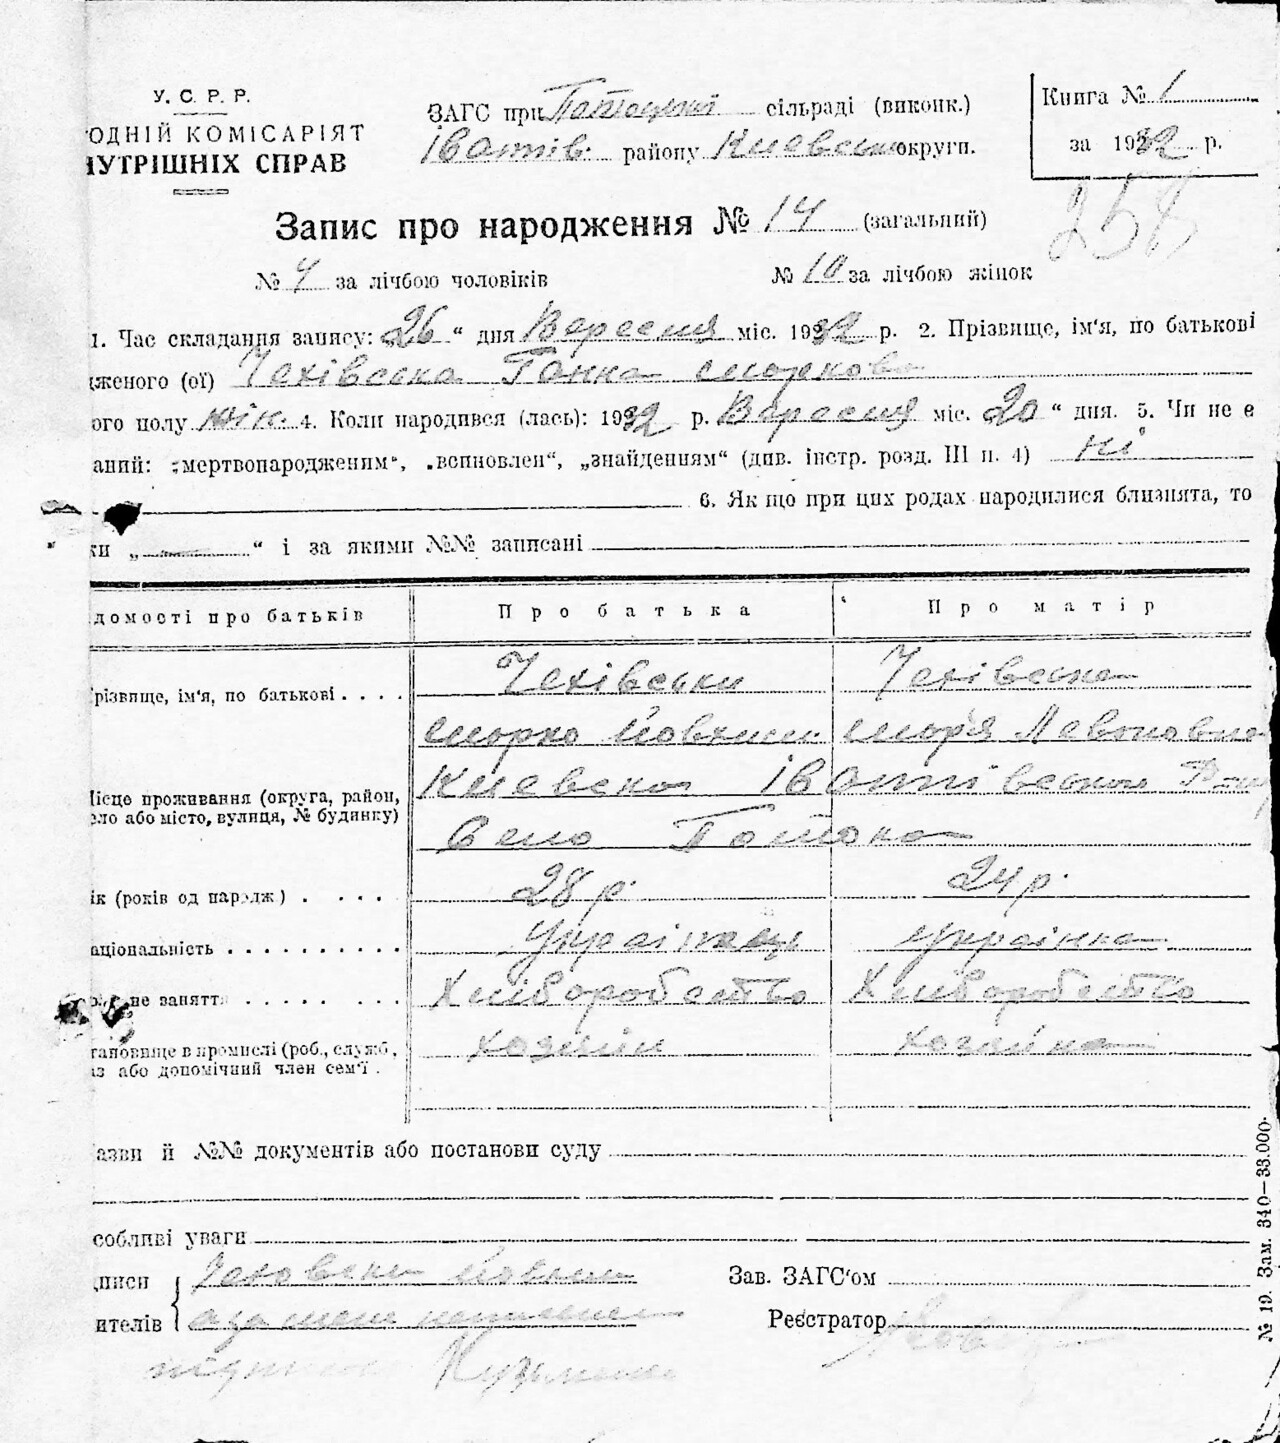 У. С. Р. Р.
ОДНІЙ КОМІСАРІЯТ
НУТРІШНІХ СПРАВ
ЗАГС при сільраді (виконк.)
району округи.
Книга № 1
за 1932 р.
258
Запис про народження № 14 (загальний)
№ 4 за лічбою чоловіків № 10 за лічбою жінок
1. Час складання запису: 26 “ дня Вересня міс. 1932 р. 2. Прізвище, ім'я, по батькові
дженого (ої) Чехівська Ганна Маркова
ого полу жін. 4. Коли народився (лась): 1932 р. Вересня міс. 20 “ дня. 5. Чи не є
аний: „мертвонародженим“, „вспновлен“, „знайденням“ (див. інстр. розд. III п. 4) ні
6. Як що при цих родах народилися близнята, то
ки „ “ і за якими №№ записані
домості про батьків Про батька Про матір
різвище, ім'я, по батькові . . . . Чехівськи Чехівська
Марко Мар'я
Місце проживання (округа, район, Киевска
ело або місто, вулиця, № будинку)
Село Потока
ік (років од народж.) . . . . 28 р. 24 р.
аціональність . . . . . . . . . . Українець Українка
не заняття . . . . . . . . Хліборобство Хліборобство
тановище в промислі (роб., служб, хозяїн хозяйка
аз або допомічний член сем'ї .
азви й №№ документів або постанови суду
собливі уваги
дписи
ителів Кузьменко
Зав. ЗАГС'ом
Реєстратор
№ 19. Зам. 340—33.000.